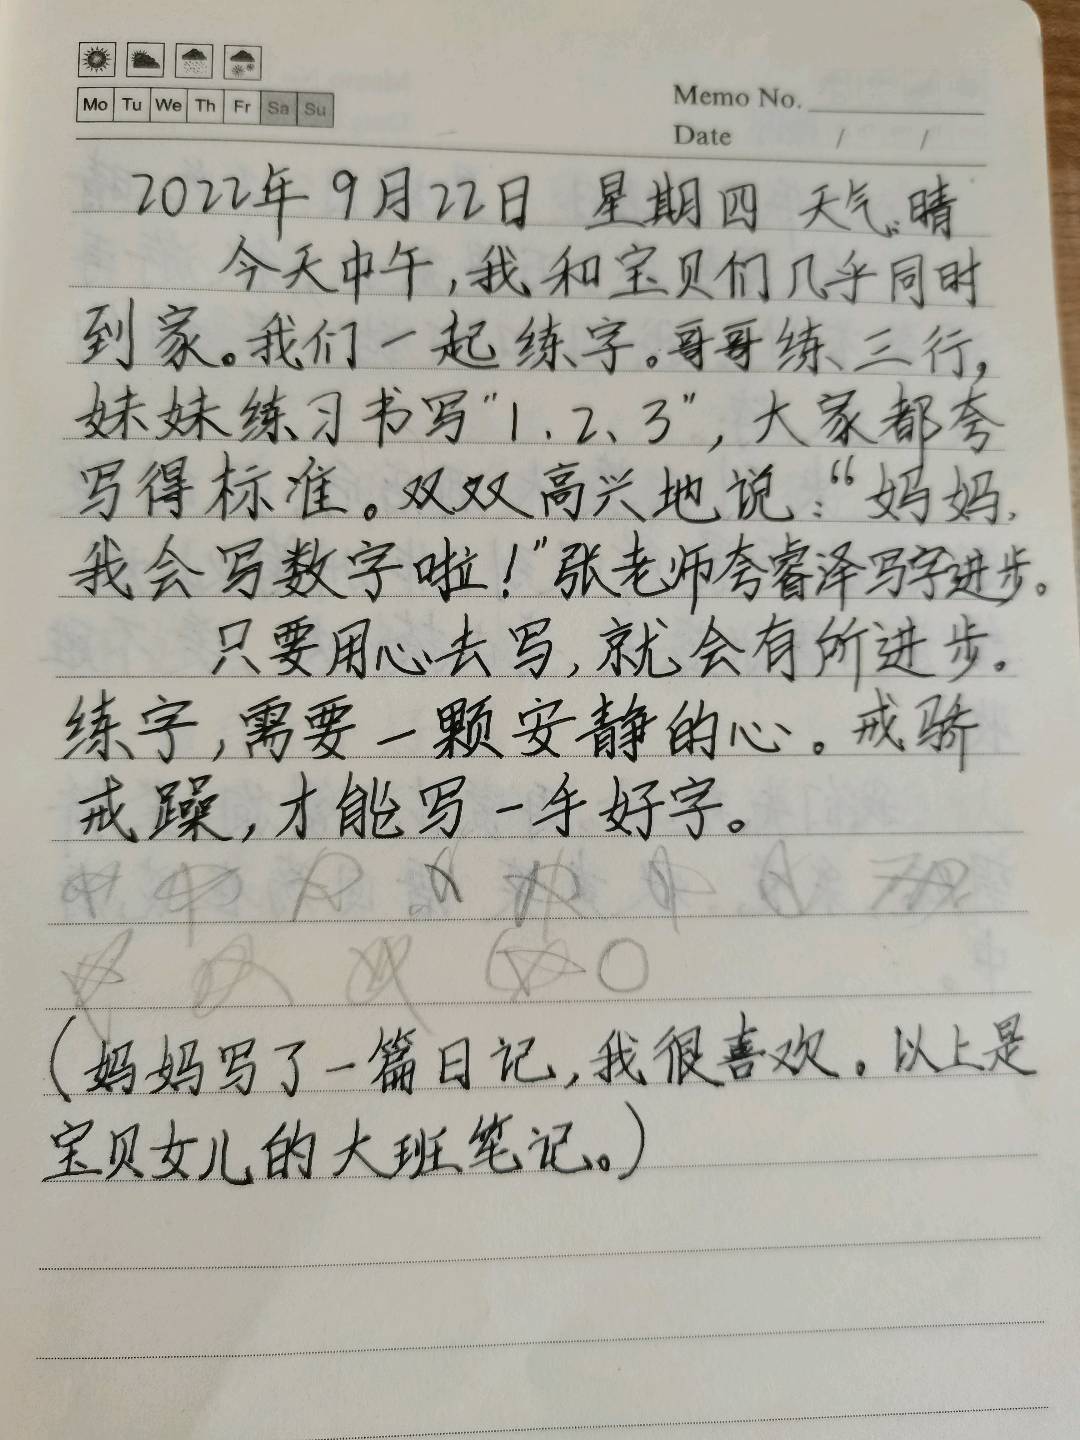 Mo Tu We Th Fr Sa Su
Memo No.
Date / /
2022年9月22日 星期四 天气:晴
今天中午,我和宝贝们几乎同时
到家。我们一起练字。哥哥练三行,
妹妹练习书写"1、2、3",大家都夸
写得标准。双双高兴地说:“妈妈,
我会写数字啦!”张老师夸睿泽写字进步。
只要用心去写,就会有所进步。
练字,需要一颗安静的心。戒骄
戒躁,才能写一手好字。
(妈妈写了一篇日记,我很喜欢。以上是
宝贝女儿的大班笔记。)